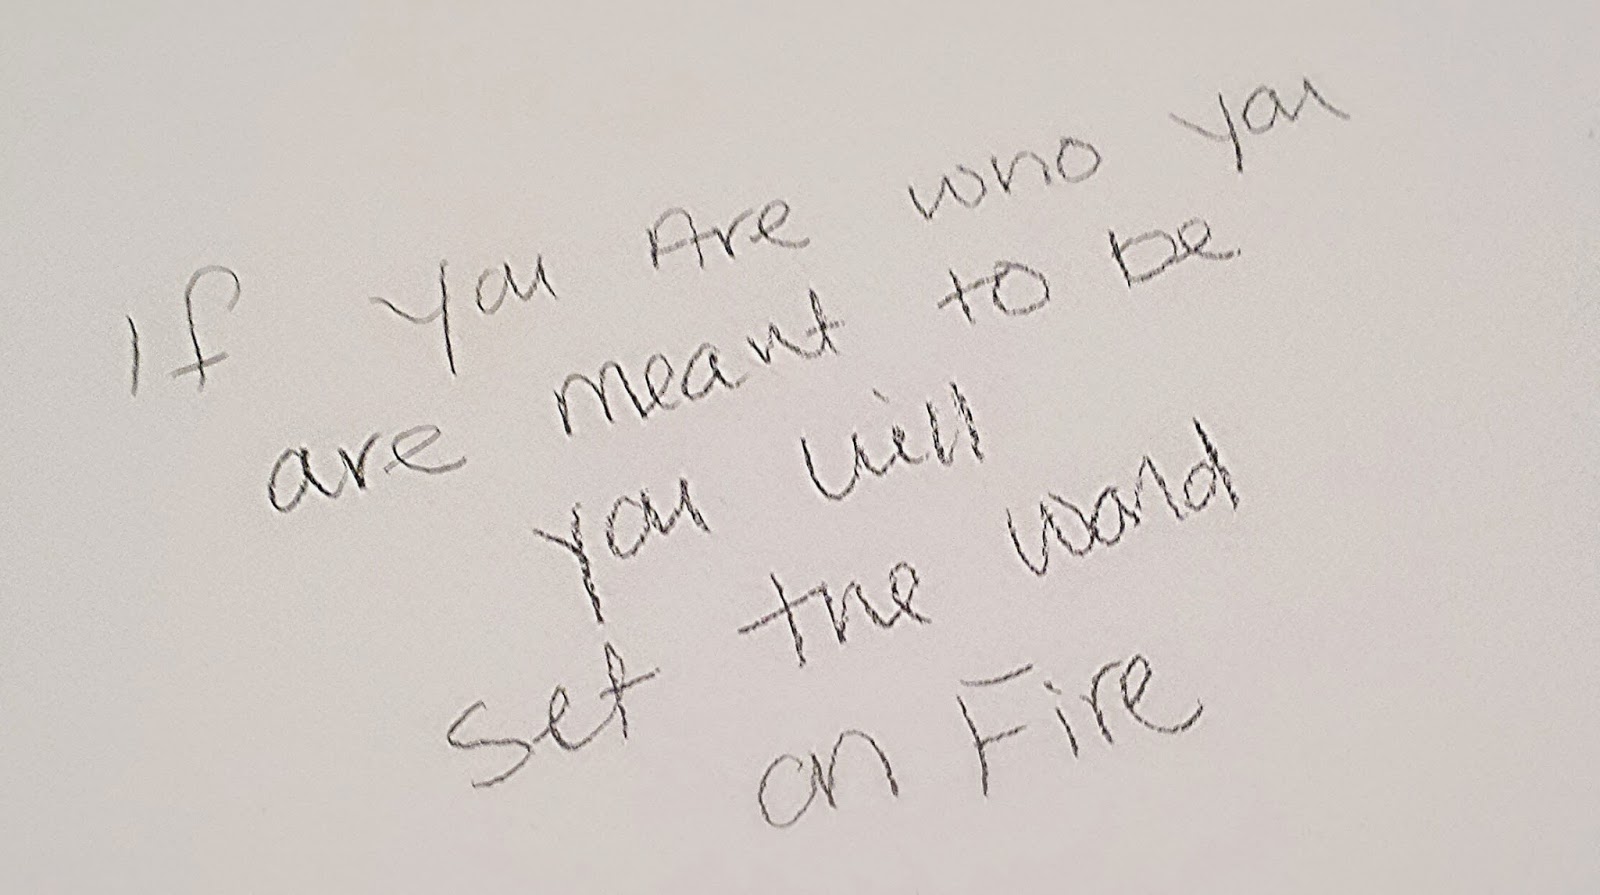 If you Are who you
are meant to be
you will
set the world
on Fire